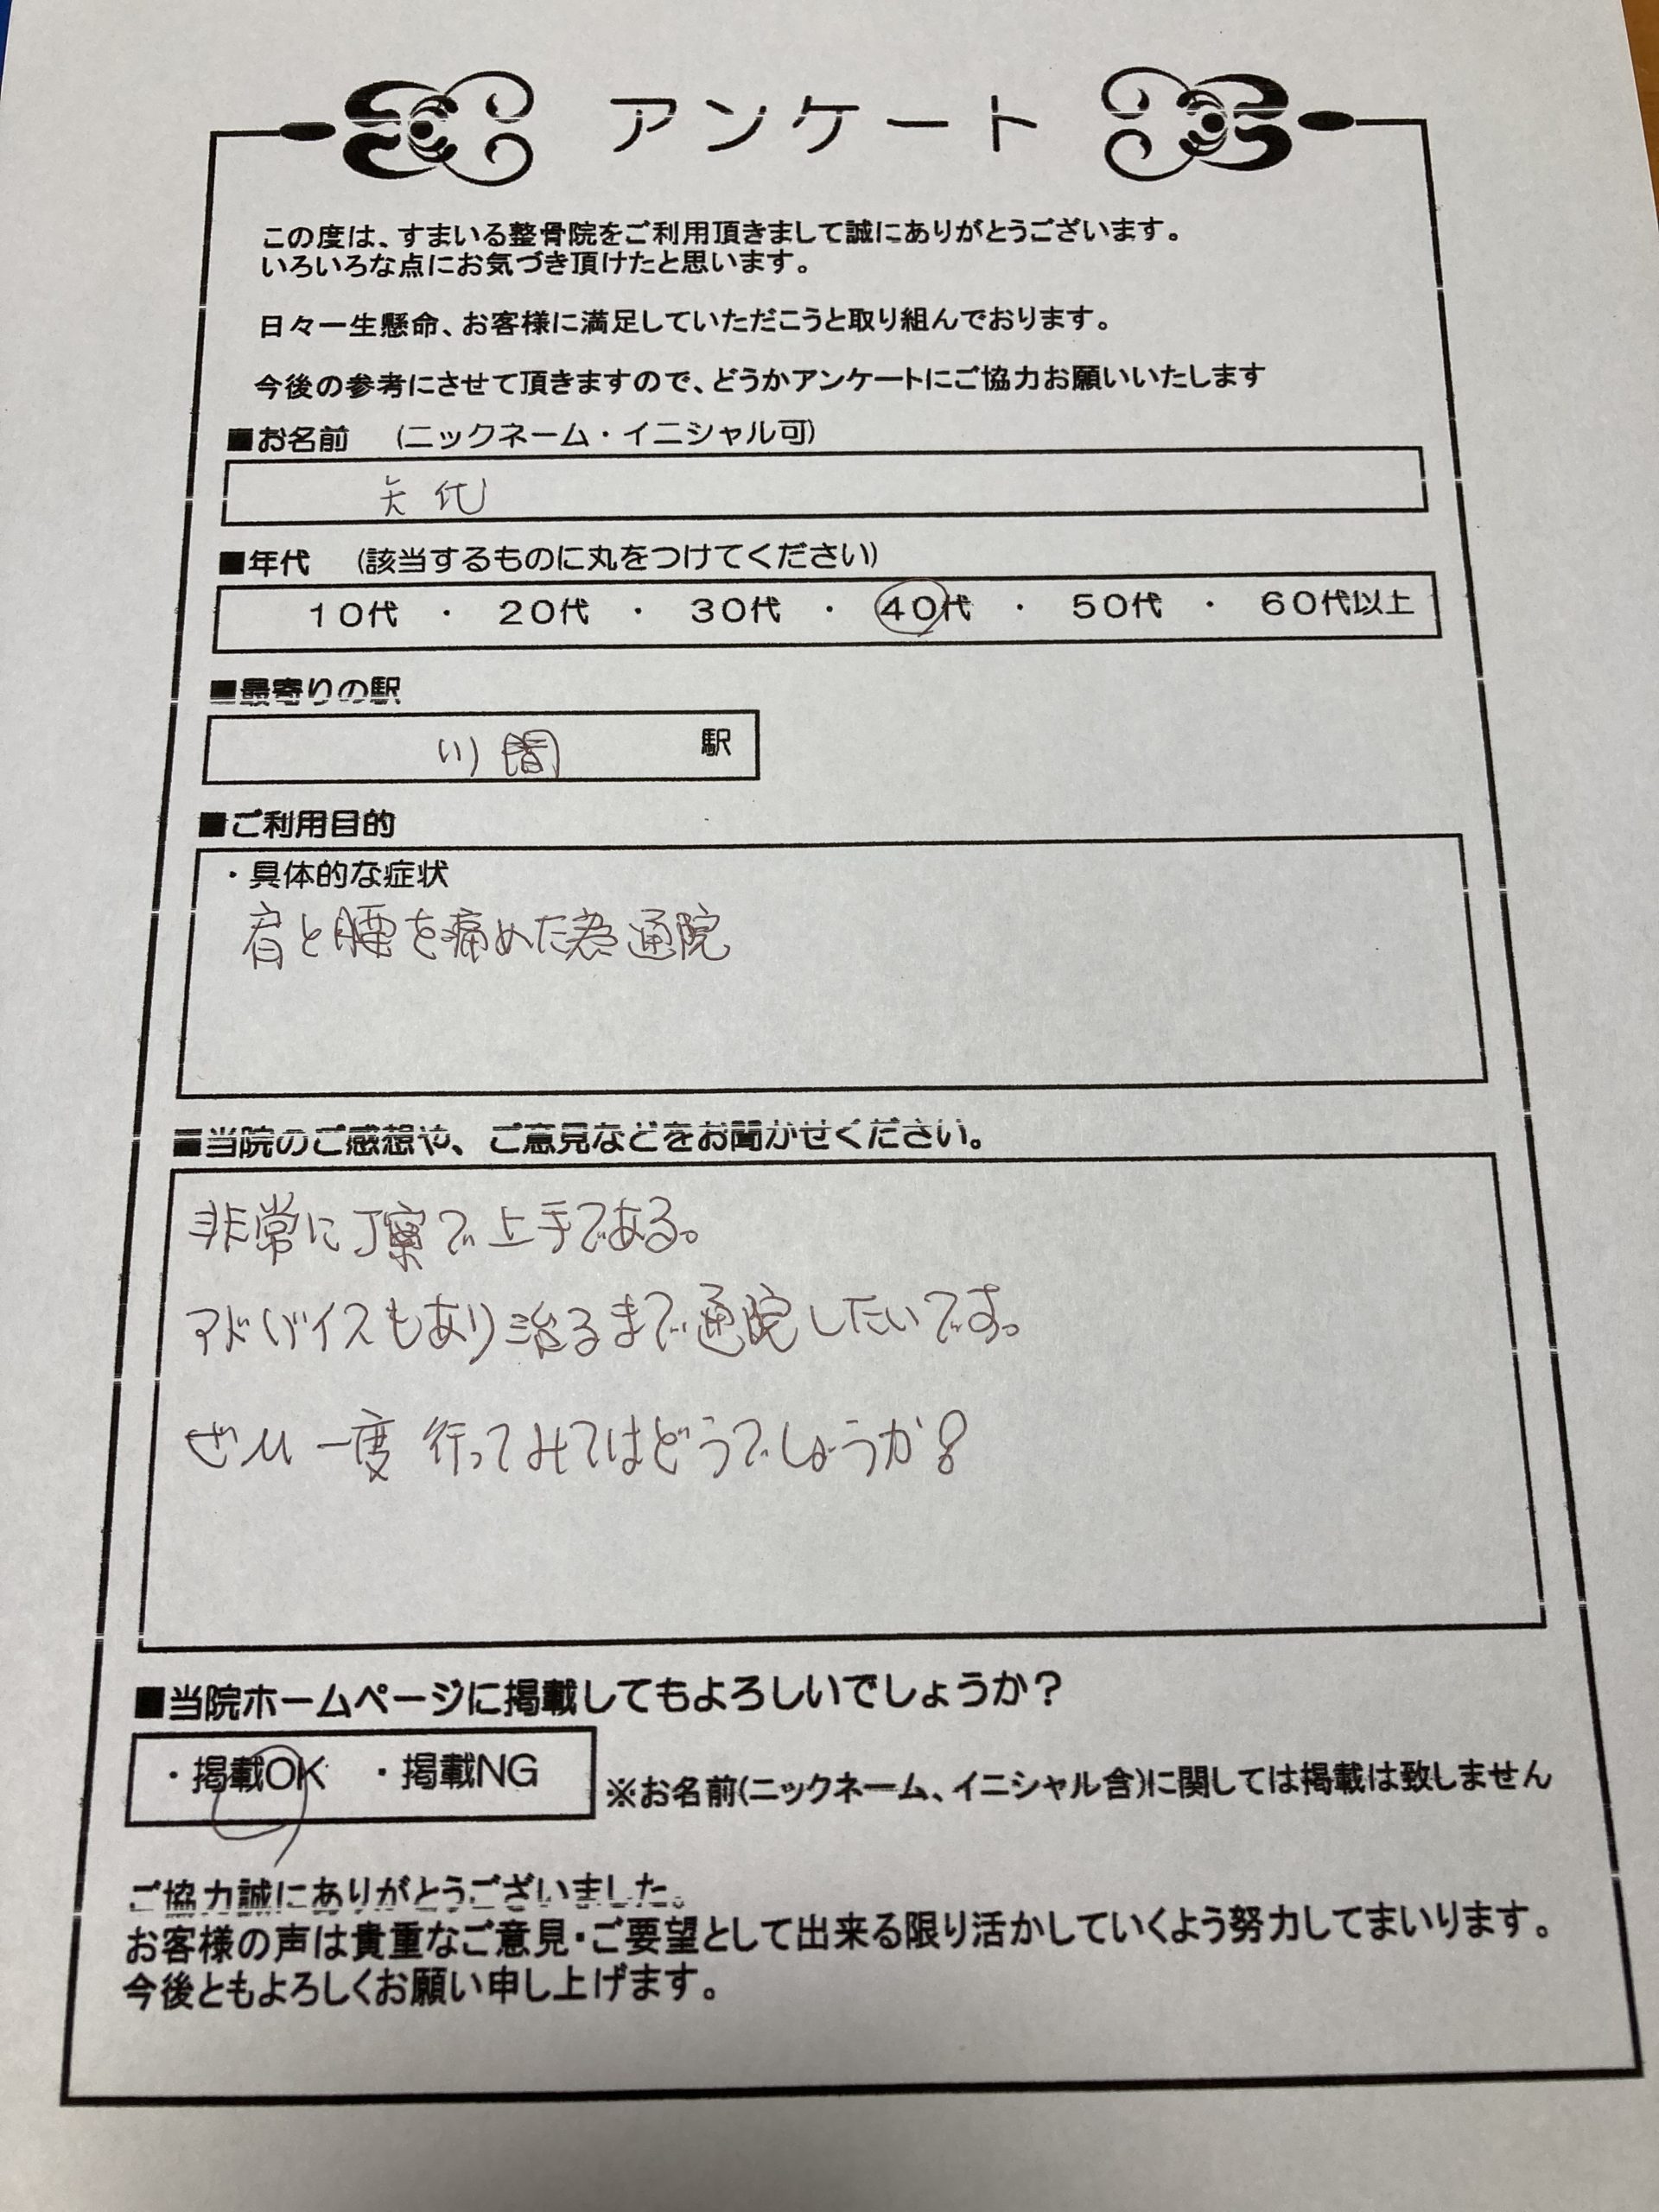 アンケート
この度は、すまいる整骨院をご利用頂きまして誠にありがとうございます。
いろいろな点にお気づき頂けたと思います。
日々一生懸命、お客様に満足していただこうと取り組んでおります。
今後の参考にさせて頂きますので、どうかアンケートにご協力お願いいたします
■お名前 (ニックネーム・イニシャル可)
矢代
■年代 (該当するものに丸をつけてください)
10代 ・ 20代 ・ 30代 ・ 40代 ・ 50代 ・ 60代以上
■最寄りの駅
川間 駅
■ご利用目的
・具体的な症状
肩と腰を痛めた為通院
■当院のご感想や、ご意見などをお聞かせください。
非常に丁寧で上手である。
アドバイスもあり治るまで通院したいです。
ぜひ一度行ってみてはどうでしょうか？
■当院ホームページに掲載してもよろしいでしょうか？
・掲載OK ・掲載NG ※お名前(ニックネーム、イニシャル含)に関しては掲載は致しません
ご協力誠にありがとうございました。
お客様の声は貴重なご意見・ご要望として出来る限り活かしていくよう努力してまいります。
今後ともよろしくお願い申し上げます。